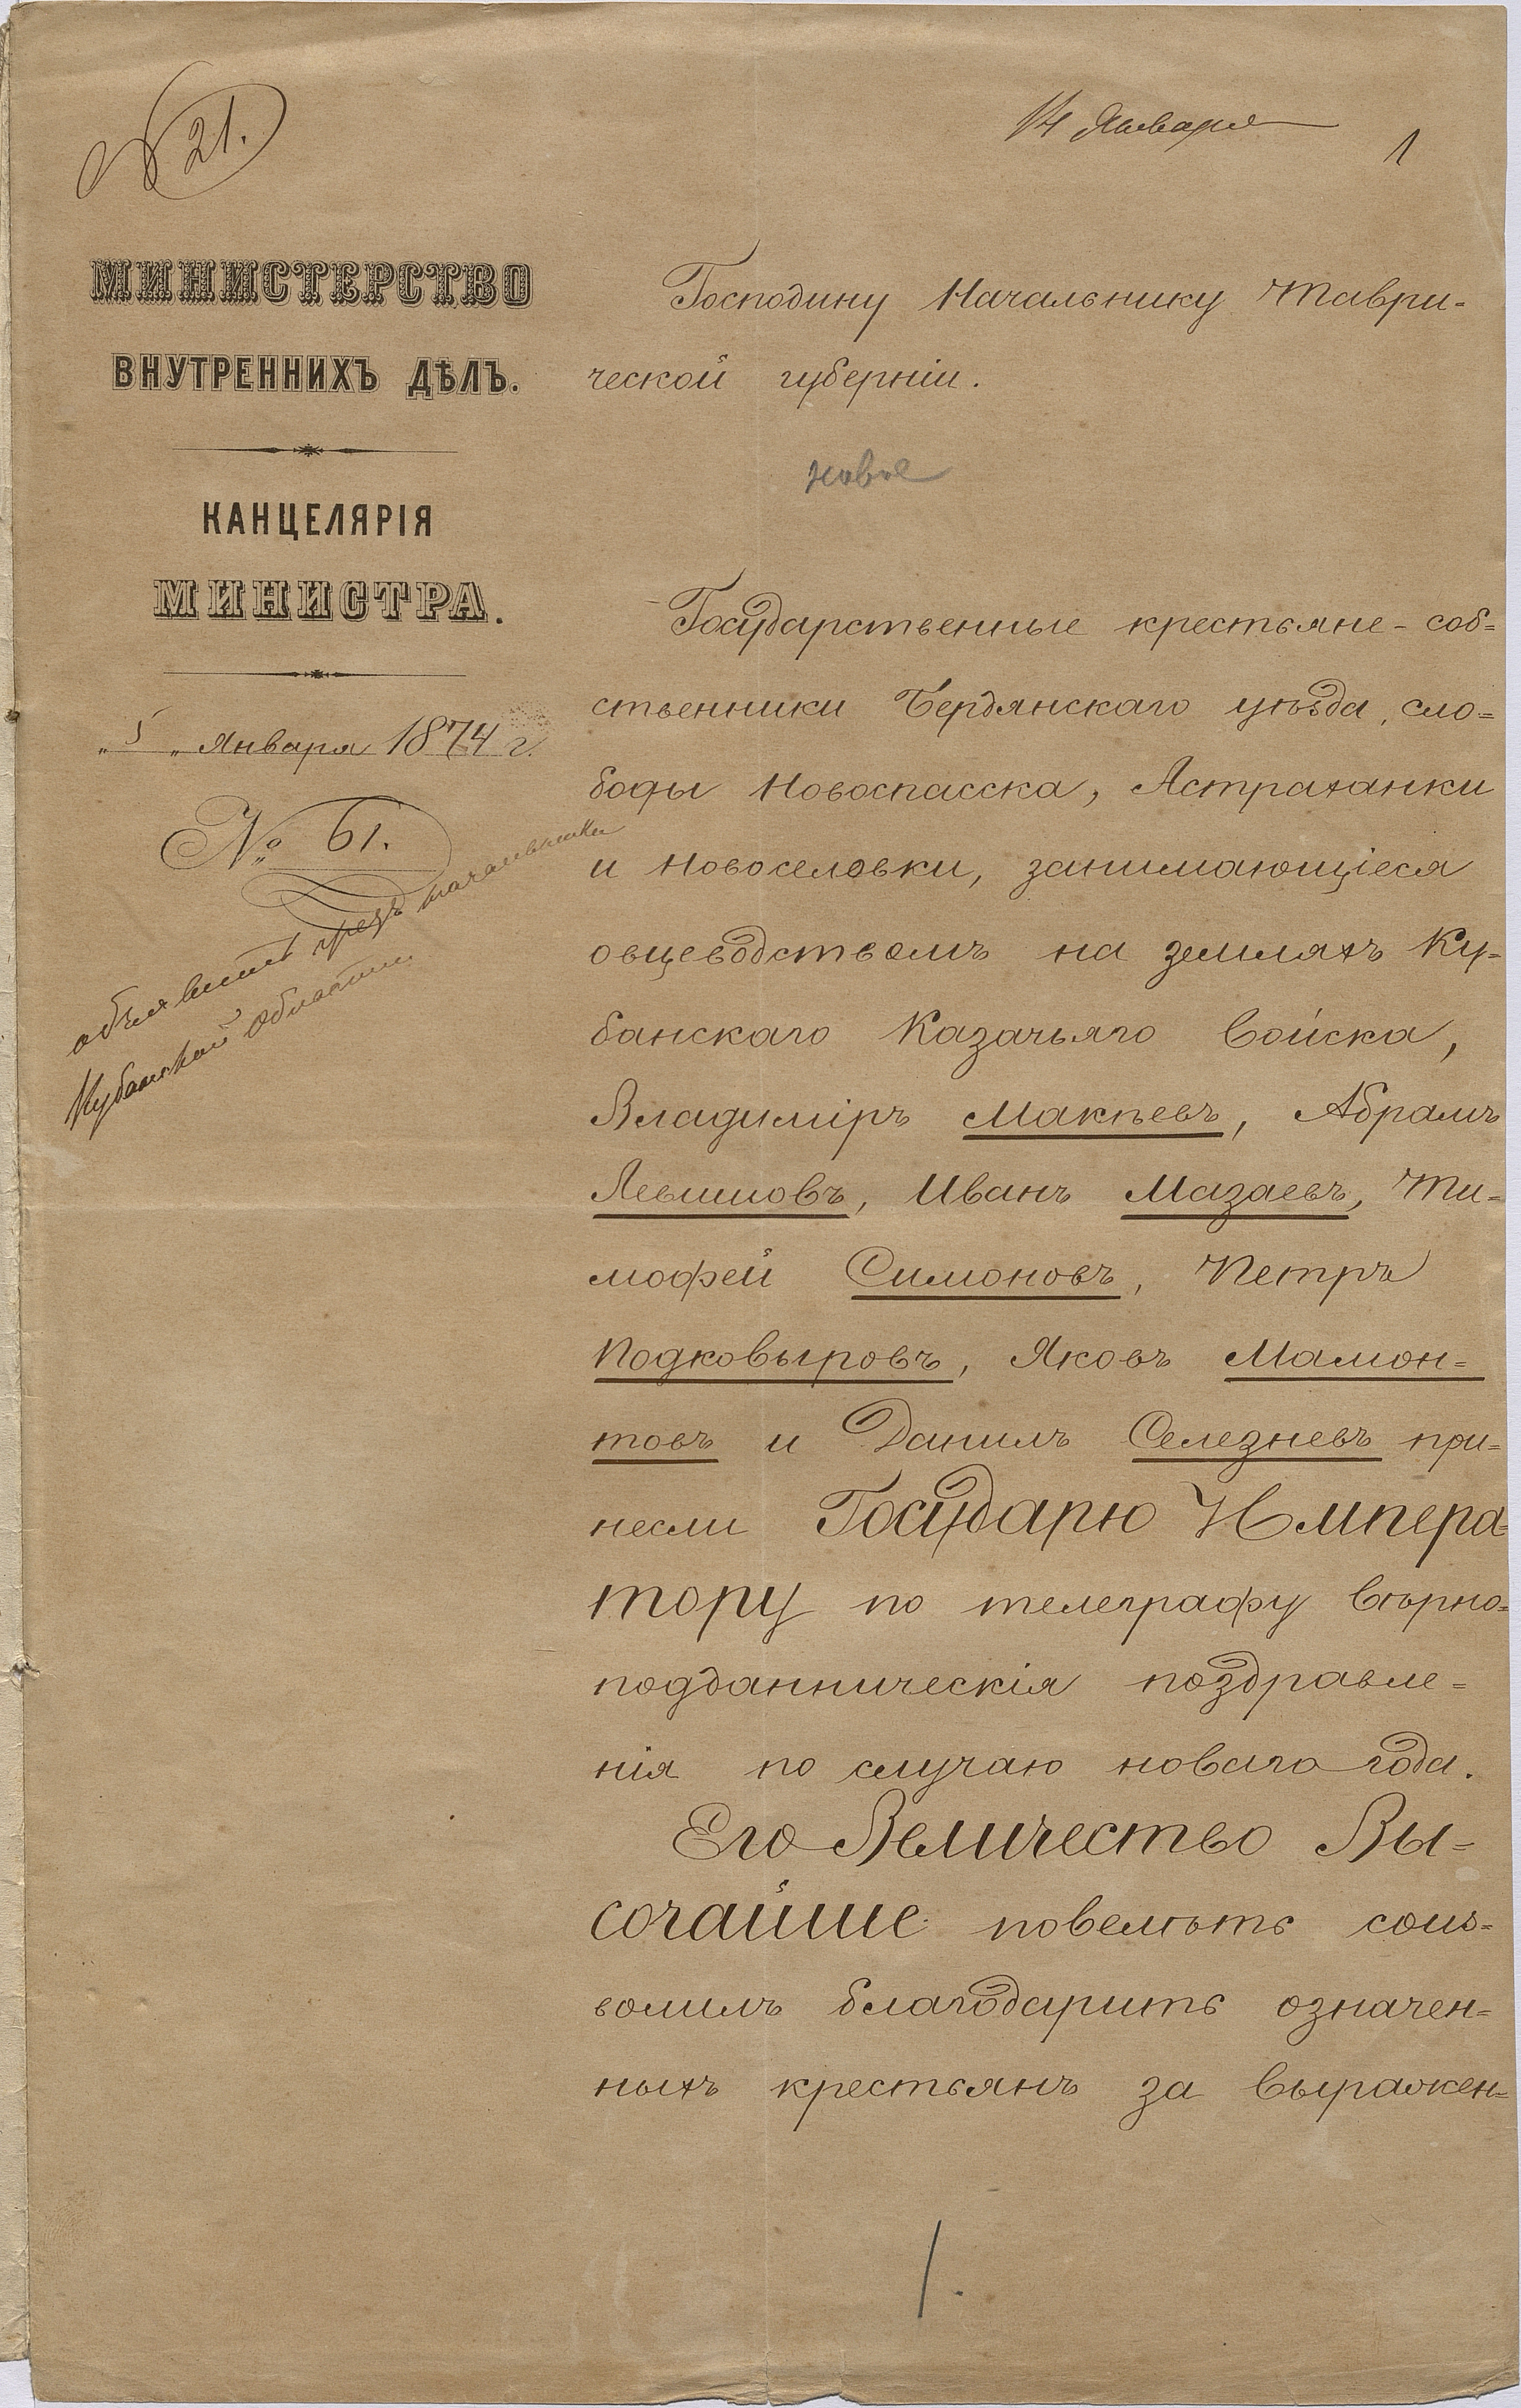 № 21.
14 Января
1
МИНИСТЕРСТВО
ВНУТРЕННИХЪ ДѢЛЪ.
КАНЦЕЛЯРІЯ
МИНИСТРА.
„5„ Января 1874 г.
№ 61.
объявить чрезъ начальника
Кубанской области
Господину Начальнику Таври-
ческой губерніи.
новое
Государственные крестьяне-соб=
ственники Бердянскаго уѣзда, сло=
боды Новоспасска, Астраханки
и Новоселовки, занимающіеся
овцеводствомъ на земляхъ Ку-
банскаго Казачьяго Войска,
Владиміръ Макѣевъ, Абрамъ
Левшовъ, Иванъ Мазаевъ, Ти-
мофей Симоновъ, Петръ
Подковыровъ, Яковъ Мамон=
товъ и Данилъ Селезневъ при=
несли Государю Импера=
тору по телеграфу вѣрно=
подданническія поздравле=
нія по случаю новаго года.
Его Величество Вы=
сочайше повелѣть соиз=
волилъ благодарить означен=
ныхъ крестьянъ за выражен=
1.